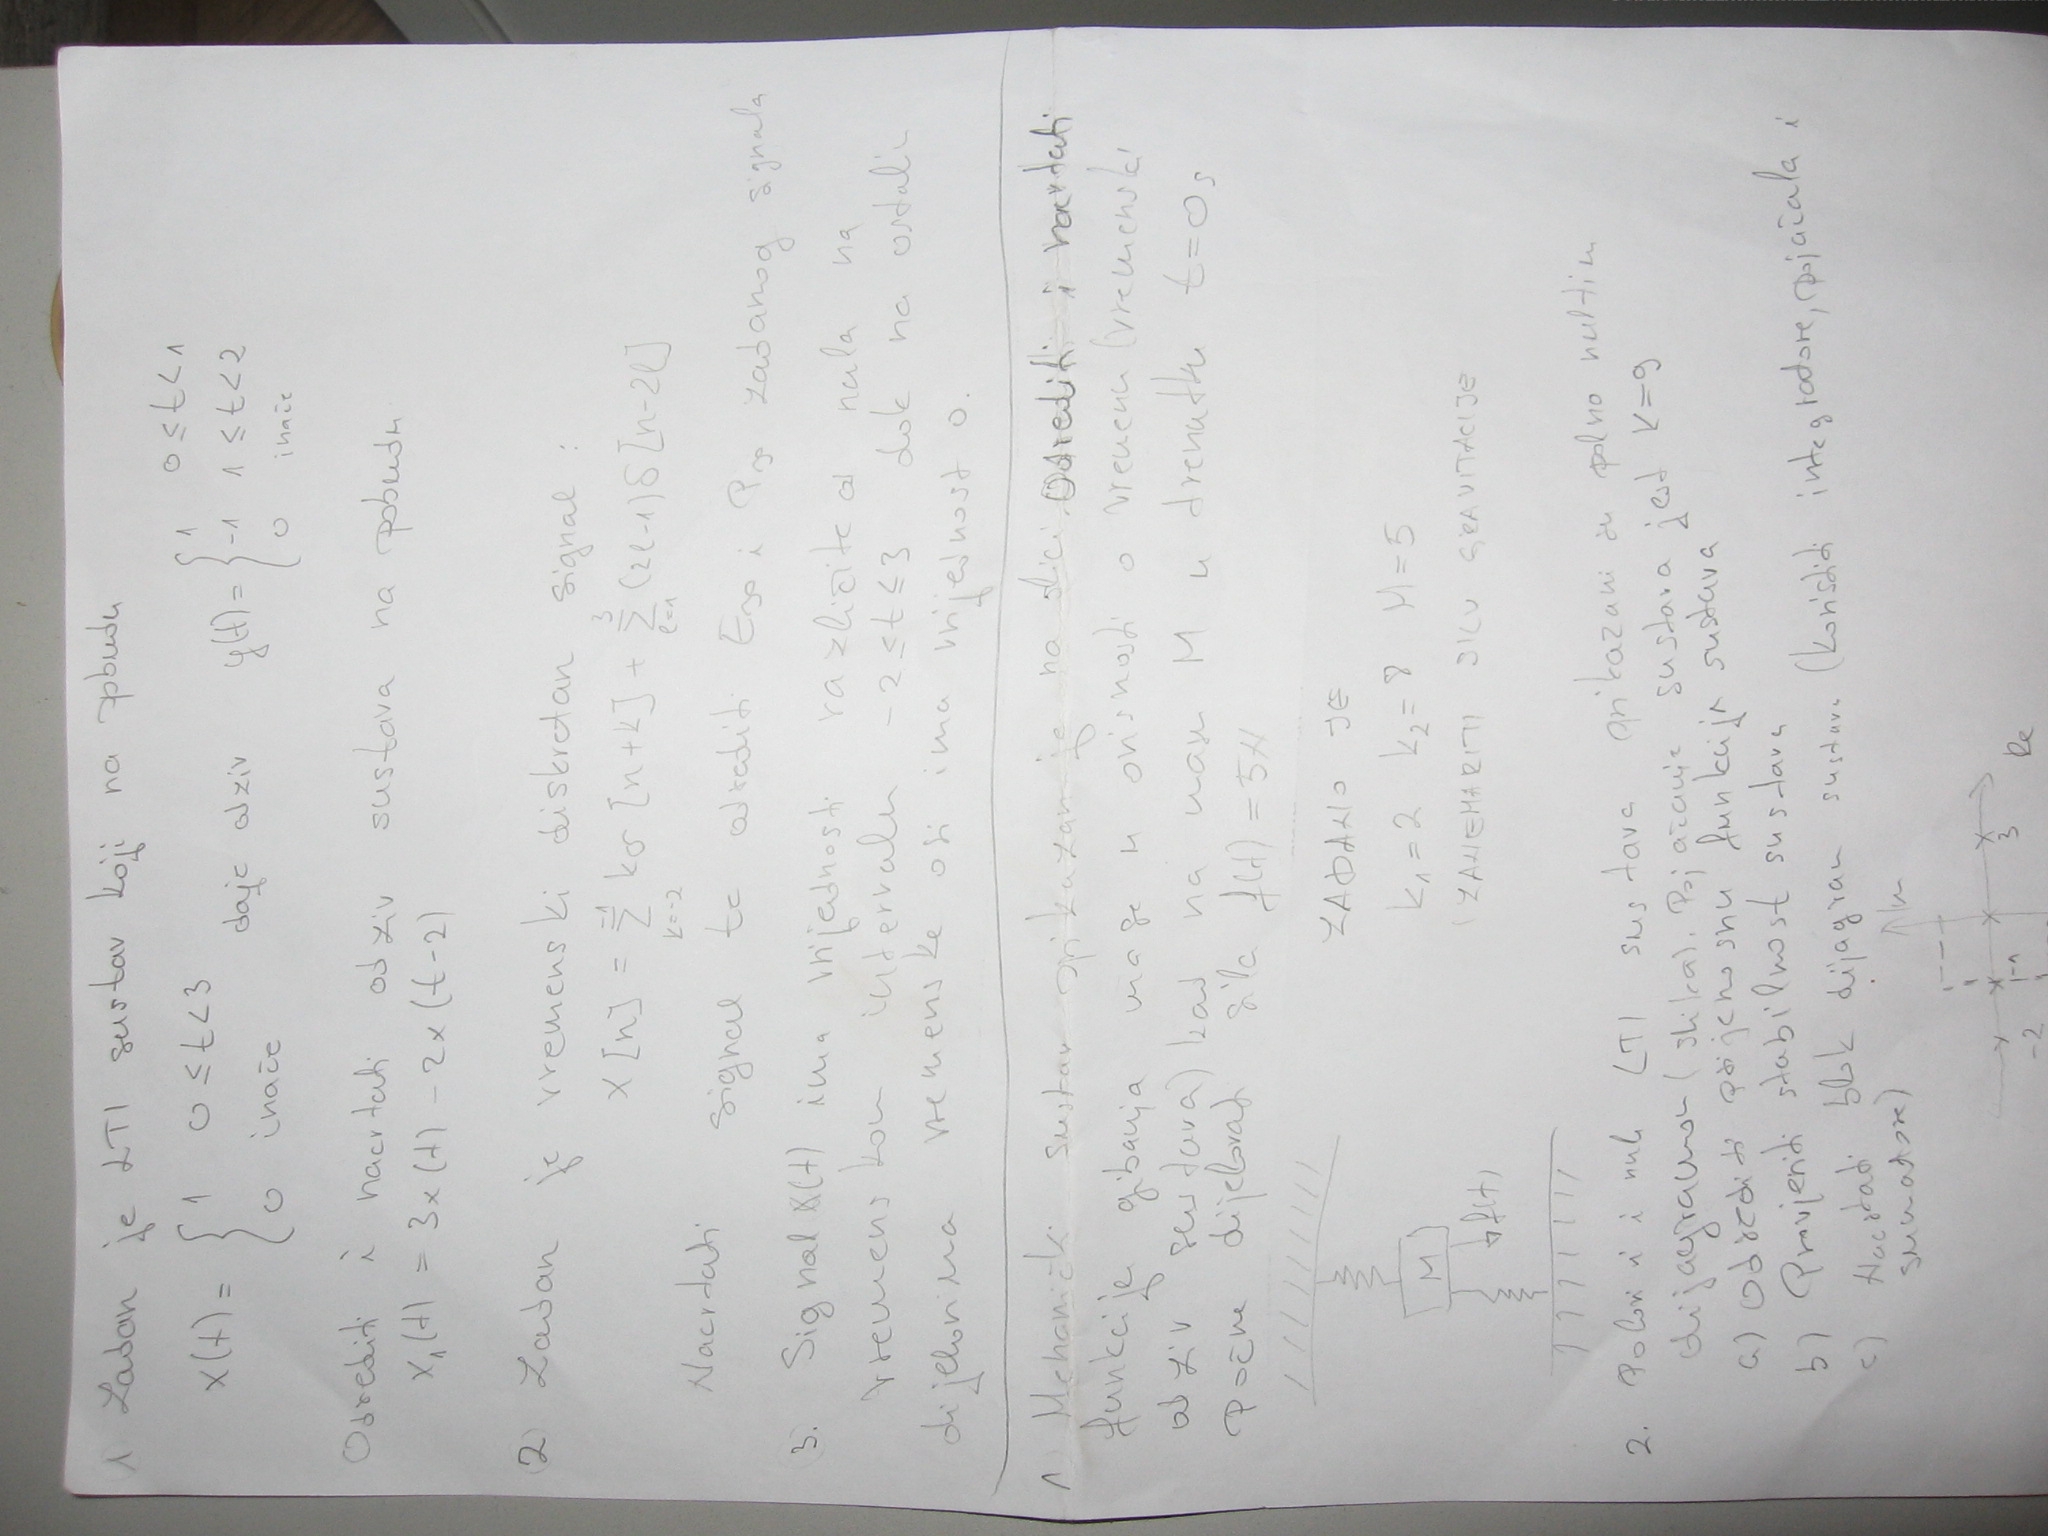 1 Zadan je LTI sustav koji na pobudu
x(t) = { 1 0 ≤ t < 3
0 inače
daje odziv
y(t) = { 1 0 ≤ t < 1
-1 1 ≤ t < 2
0 inače
Odrediti i nacrtati odziv sustava na pobudu
x₁(t) = 3x(t) - 2x(t-2)
2) Zadan je vremenski diskretan signal:
x[n] = \sum_{k=-2}^{-1} kδ[n+k] + \sum_{l=1}^{3} (2l-1)δ[n-2l]
Nacrtati signal te odrediti E∞ i P∞ zadanog signala
3. Signal x(t) ima vrijednosti različite od nula na
vremenskom intervalu -2 ≤ t ≤ 3 dok na ostalim
dijelovima vremenske osi ima vrijednost 0.
1 Mehanički sustav prikazan je na slici. Odrediti i nacrtati
funkcije gibanja mase u ovisnosti o vremenu (vremenski
odziv sustava) kad na masu M u trenutku t=0s
počne djelovati sila f(t) = 5N
ZADANO JE
k₁=2 k₂=8 M=5
(ZANEMARITI SILU GRAVITACIJE
M
f(t)
2. Polovi i nule LTI sustava prikazani su polno nultim
dijagramom (slika). Pojačanje sustava jest k=9
a) Odrediti prijenosnu funkciju sustava
b) Provjeriti stabilnost sustava
c) Nacrtati blok dijagram sustava (koristiti integratore, pojačala i
sumatore)
Im
-2
-1
3
Re